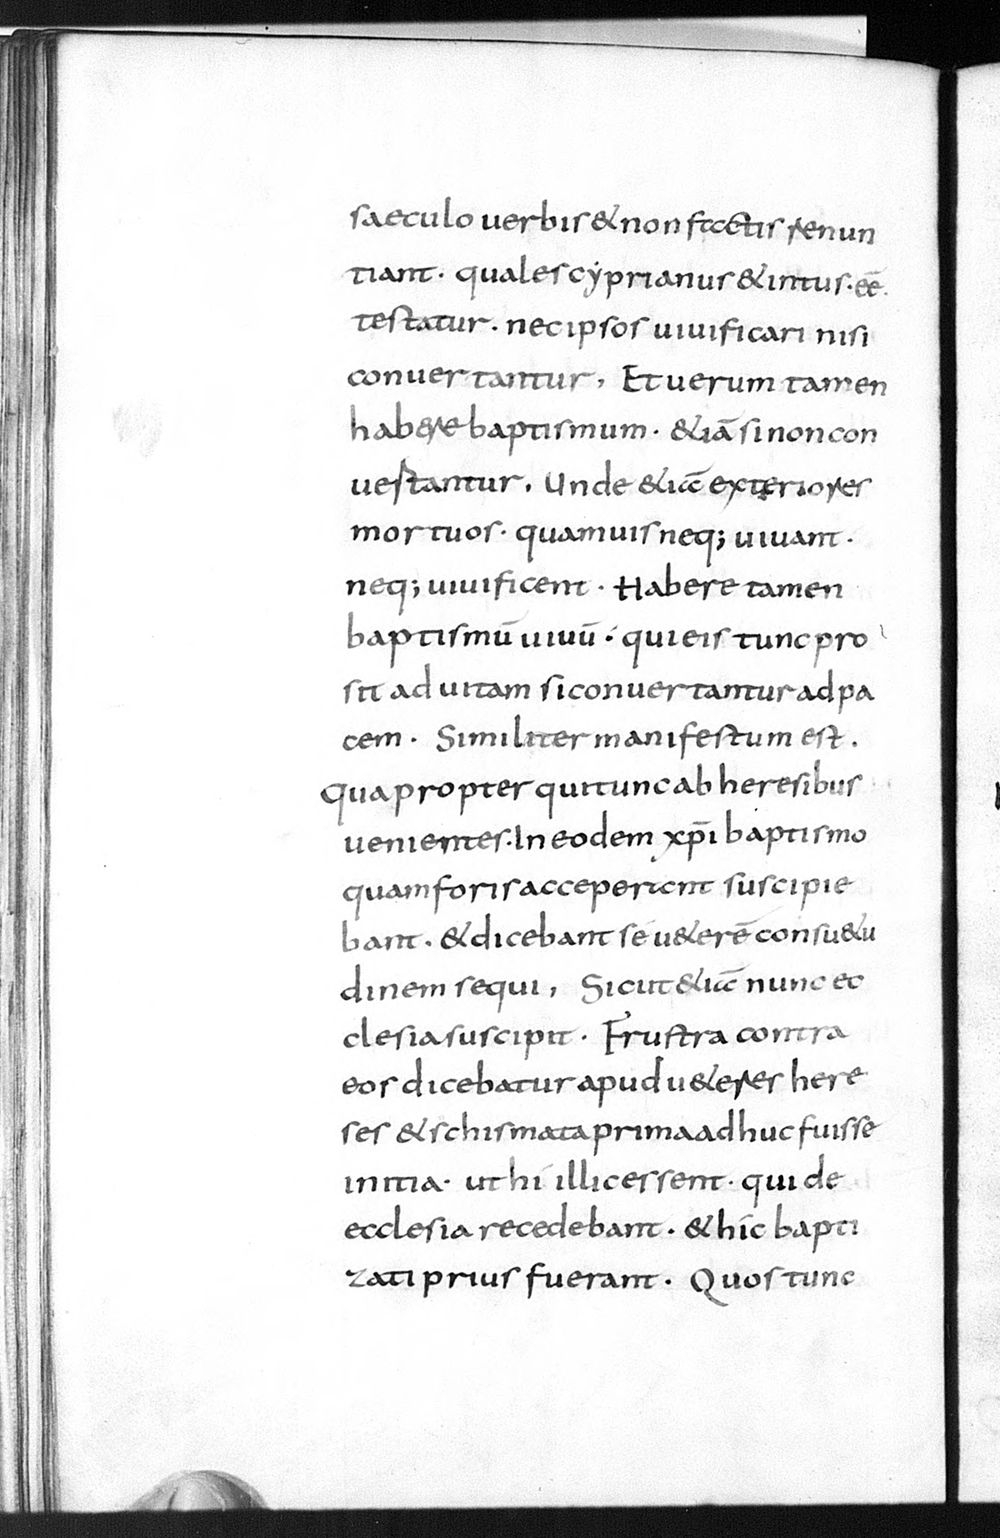 saeculo uerbis & non factis renun
tiant · quales cẏprianus & intus · eē
testatur · nec ipsos uiuificari nisi
conuertantur, Et uerum tamen
hab&re baptismum · &iā si non con
uertantur, Unde &iā exteriores
mortuos · quamuis neq; uiuant ·
neq; uiuificent · Habere tamen
baptismū uiuū · qui eis tunc pro
sit ad uitam si conuertantur ad pa
cem · Similiter manifestum est ·
Quapropter qui tunc ab heresibus
uenientes · In eodem xp̄i baptismo
quam foris acceperant suscipie
bant · & dicebant se u&erē consu&u
dinem sequi, Sicut &iā nunc ec
clesia suscipit · Frustra contra
eos dicebatur apud u&eres here
ses & schismata prima adhuc fuisse
initia · ut hi illic essent · qui de
ecclesia recedebant · & hic bapti
zati prius fuerant · Quos tunc